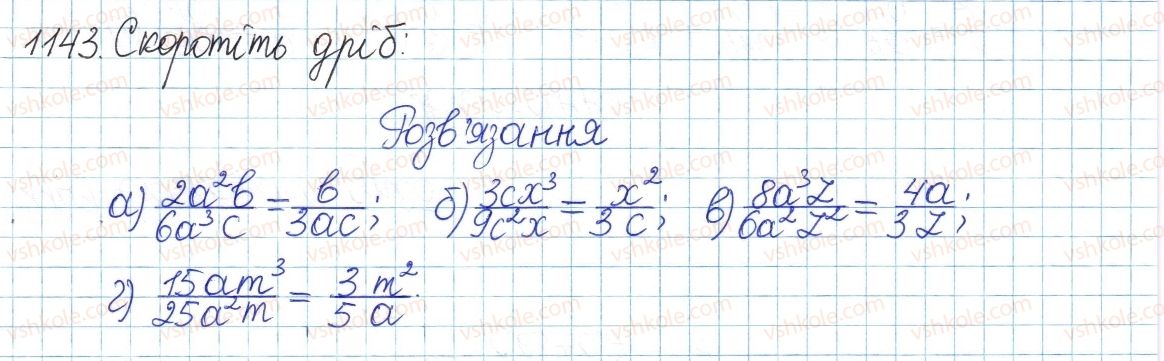 1143. Скоротіть дріб:
Розв'язання
а) 2a²b/6a³c = b/3ac; б) 3cx³/9c²x = x²/3c; в) 8a³z/6a²z² = 4a/3z;
г) 15am³/25a²m = 3m²/5a.
vshkole.com